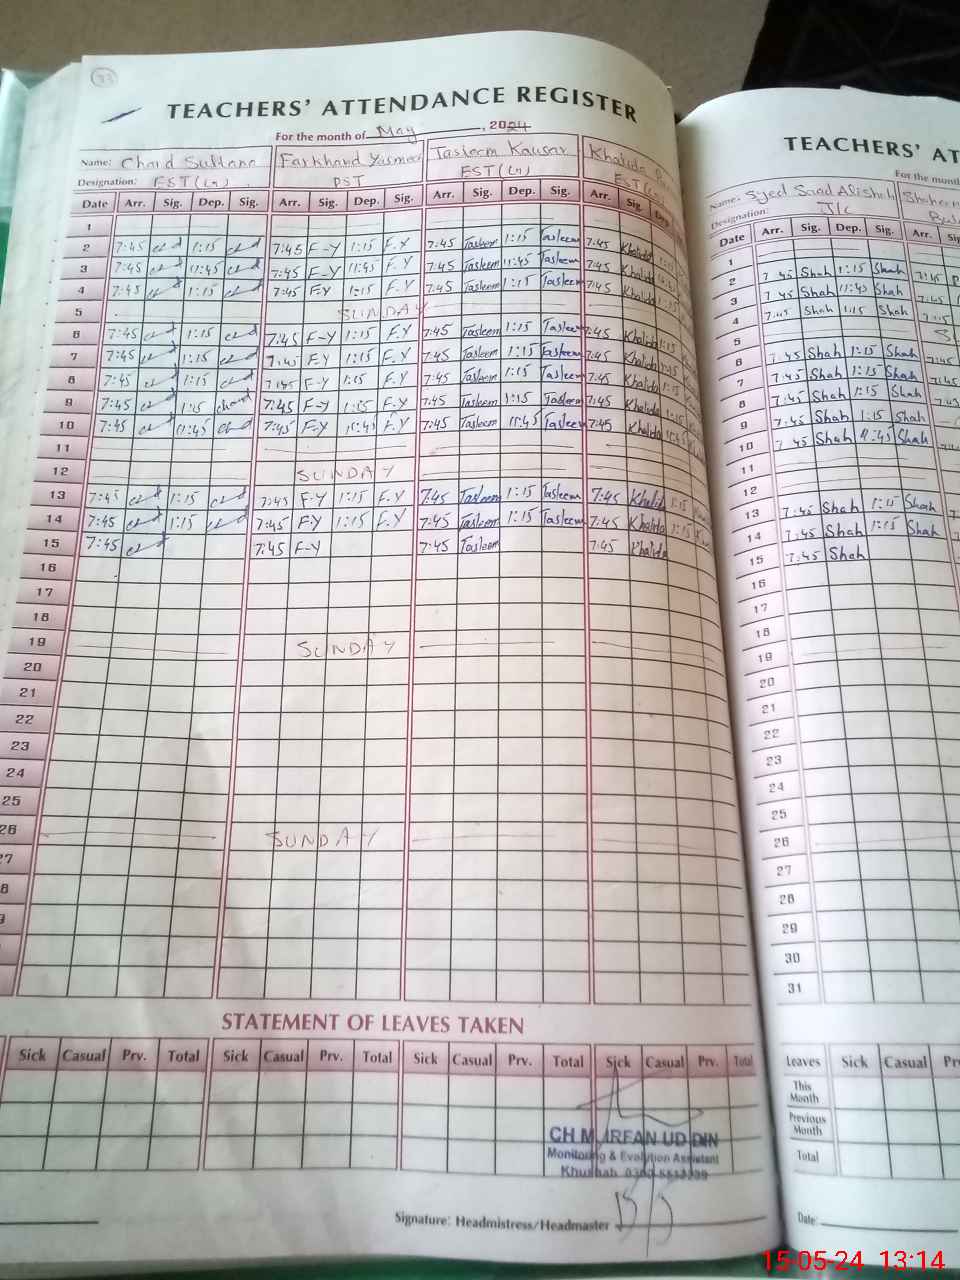 33
TEACHERS' ATTENDANCE REGISTER
For the month of May, 2024
Name: Chand Sultana Farkhand Yasmeen Tasleem Kausar Khalida
Designation: EST(Sn) PST EST(Sn) EST(Sn)
Date Arr. Sig. Dep. Sig. Arr. Sig. Dep. Sig. Arr. Sig. Dep. Sig. Arr. Sig. Dep.
1
2 7:45 1:15 7:45 F-Y 1:15 F.Y 7:45 Tasleem 1:15 Tasleem 7:45 Khalida 1:15
3 7:45 11:45 7:45 F-Y 11:45 F.Y 7:45 Tasleem 11:45 Tasleem 7:45 Khalida
4 7:45 1:15 7:45 F-Y 1:15 F.Y 7:45 Tasleem 1:15 Tasleem 7:45 Khalida 1:15
5 SUNDAY
6 7:45 1:15 7:45 F-Y 1:15 F.Y 7:45 Tasleem 1:15 Tasleem 7:45 Khalida 1:15
7 7:45 1:15 7:45 F-Y 1:15 F.Y 7:45 Tasleem 1:15 Tasleem 7:45 Khalida 1:15
8 7:45 1:15 7:45 F-Y 1:15 F.Y 7:45 Tasleem 1:15 Tasleem 7:45 Khalida 1:15
9 7:45 1:15 chand 7:45 F-Y 1:15 F.Y 7:45 Tasleem 1:15 Tasleem 7:45 Khalida 1:15
10 7:45 11:45 7:45 F-Y 11:45 F.Y 7:45 Tasleem 11:45 Tasleem 7:45 Khalida 11:45
11
12 SUNDAY
13 7:45 1:15 7:45 F-Y 1:15 F.Y 7:45 Tasleem 1:15 Tasleem 7:45 Khalida 1:15
14 7:45 1:15 7:45 F-Y 1:15 F.Y 7:45 Tasleem 1:15 Tasleem 7:45 Khalida 1:15
15 7:45 7:45 F-Y 7:45 Tasleem 7:45 Khalida
16
17
18
19 SUNDAY
20
21
22
23
24
25
26 SUNDAY
27
8
9
STATEMENT OF LEAVES TAKEN
Sick Casual Prv. Total Sick Casual Prv. Total Sick Casual Prv. Total Sick Casual Prv. Total
CH M. IRFAN UD DIN
Monitoring & Evalution Assistant
Khushab
Signature: Headmistress/Headmaster
15/5
TEACHERS' AT
For the month
Name: Syed Saad Ali Shah
Designation: J/c
Date Arr. Sig. Dep. Sig. Arr.
1
2 7:45 Shah 1:15 Shah 7:45
3 7:45 Shah 11:45 Shah 7:45
4 7:45 Shah 1:15 Shah
5
6 7:45 Shah 1:15 Shah 7:45
7 7:45 Shah 1:15 Shah 7:45
8 7:45 Shah 1:15 Shah
9 7:45 Shah 1:15 Shah
10 7:45 Shah 11:45 Shah
11
12
13 7:45 Shah 1:15 Shah
14 7:45 Shah 1:15 Shah
15 7:45 Shah
16
17
18
19
20
21
22
23
24
25
26
27
28
29
30
31
Leaves Sick Casual Pr
This Month
Previous Month
Total
Date:
15-05-24 13:14